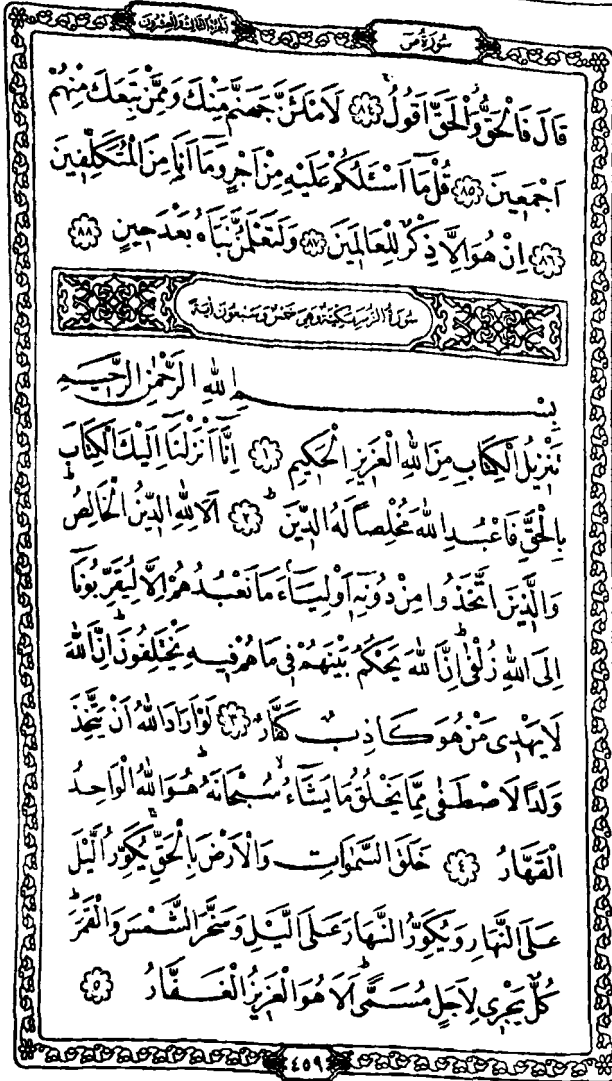 سُورَةُ صٓ
اَلْجُزْءُ الثَّالِثُ وَالْعِشْرُونَ
قَالَ فَالْحَقُّ وَالْحَقَّ اَقُولُ ﴿٨٤﴾ لَاَمْلَئَنَّ جَهَنَّمَ مِنْكَ وَمِمَّنْ تَبِعَكَ مِنْهُمْ
اَجْمَعِينَ ﴿٨٥﴾ قُلْ مَٓا اَسْـَٔلُكُمْ عَلَيْهِ مِنْ اَجْرٍ وَمَٓا اَنَا۬ مِنَ الْمُتَكَلِّفِينَ
﴿٨٦﴾ اِنْ هُوَ اِلَّا ذِكْرٌ لِلْعَالَمِينَ ﴿٨٧﴾ وَلَتَعْلَمُنَّ نَبَاَهُ بَعْدَ حِينٍ ﴿٨٨﴾
سُورَةُ الزُّمَرِ مَكِّيَّةٌ وَهِيَ خَمْسٌ وَسَبْعُونَ اٰيَةً
بِسْمِ اللّٰهِ الرَّحْمٰنِ الرَّحِيمِ
تَنْزِيلُ الْكِتَابِ مِنَ اللّٰهِ الْعَزِيزِ الْحَكِيمِ ﴿١﴾ اِنَّٓا اَنْزَلْنَٓا اِلَيْكَ الْكِتَابَ
بِالْحَقِّ فَاعْبُدِ اللّٰهَ مُخْلِصًا لَهُ الدِّينَۜ ﴿٢﴾ اَلَا لِلّٰهِ الدِّينُ الْخَالِصُۜ
وَالَّذِينَ اتَّخَذُوا مِنْ دُونِهِٓ اَوْلِيَٓاءَۢ مَا نَعْبُدُهُمْ اِلَّا لِيُقَرِّبُونَٓا
اِلَى اللّٰهِ زُلْفٰىۜ اِنَّ اللّٰهَ يَحْكُمُ بَيْنَهُمْ فِي مَا هُمْ فِيهِ يَخْتَلِفُونَۜ اِنَّ اللّٰهَ
لَا يَهْدِي مَنْ هُوَ كَاذِبٌ كَفَّارٌ ﴿٣﴾ لَوْ اَرَادَ اللّٰهُ اَنْ يَتَّخِذَ
وَلَدًا لَاصْطَفٰى مِمَّا يَخْلُقُ مَا يَشَٓاءُۙ سُبْحَانَهُۜ هُوَ اللّٰهُ الْوَاحِدُ
الْقَهَّارُ ﴿٤﴾ خَلَقَ السَّمٰوَاتِ وَالْاَرْضَ بِالْحَقِّۚ يُكَوِّرُ الَّيْلَ
عَلَى النَّهَارِ وَيُكَوِّرُ النَّهَارَ عَلَى الَّيْلِ وَسَخَّرَ الشَّمْسَ وَالْقَمَرَۜ
كُلٌّ يَجْرِي لِاَجَلٍ مُسَمًّىۜ اَلَا هُوَ الْعَزِيزُ الْغَفَّارُ ﴿٥﴾
٤٥٩